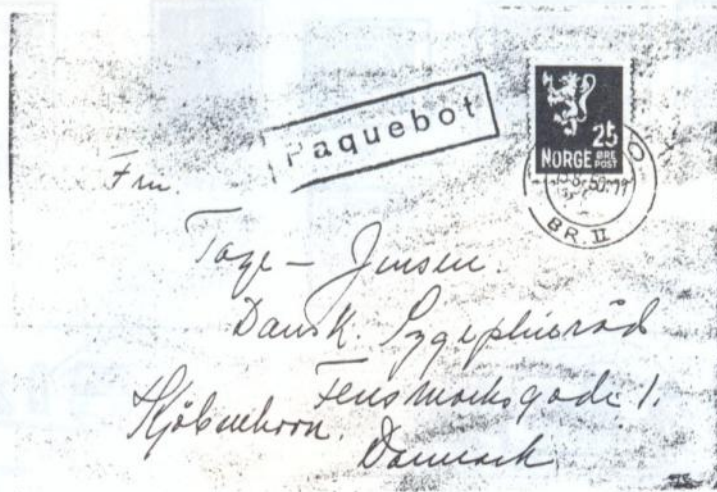 Paquebot
25
NORGE ØRE POST
BR. II
Fru.
Tage – Jensen.
Dansk. Sygeplejeråd
Fensmarksgade 1.
Kjøbenhavn.
Danmark